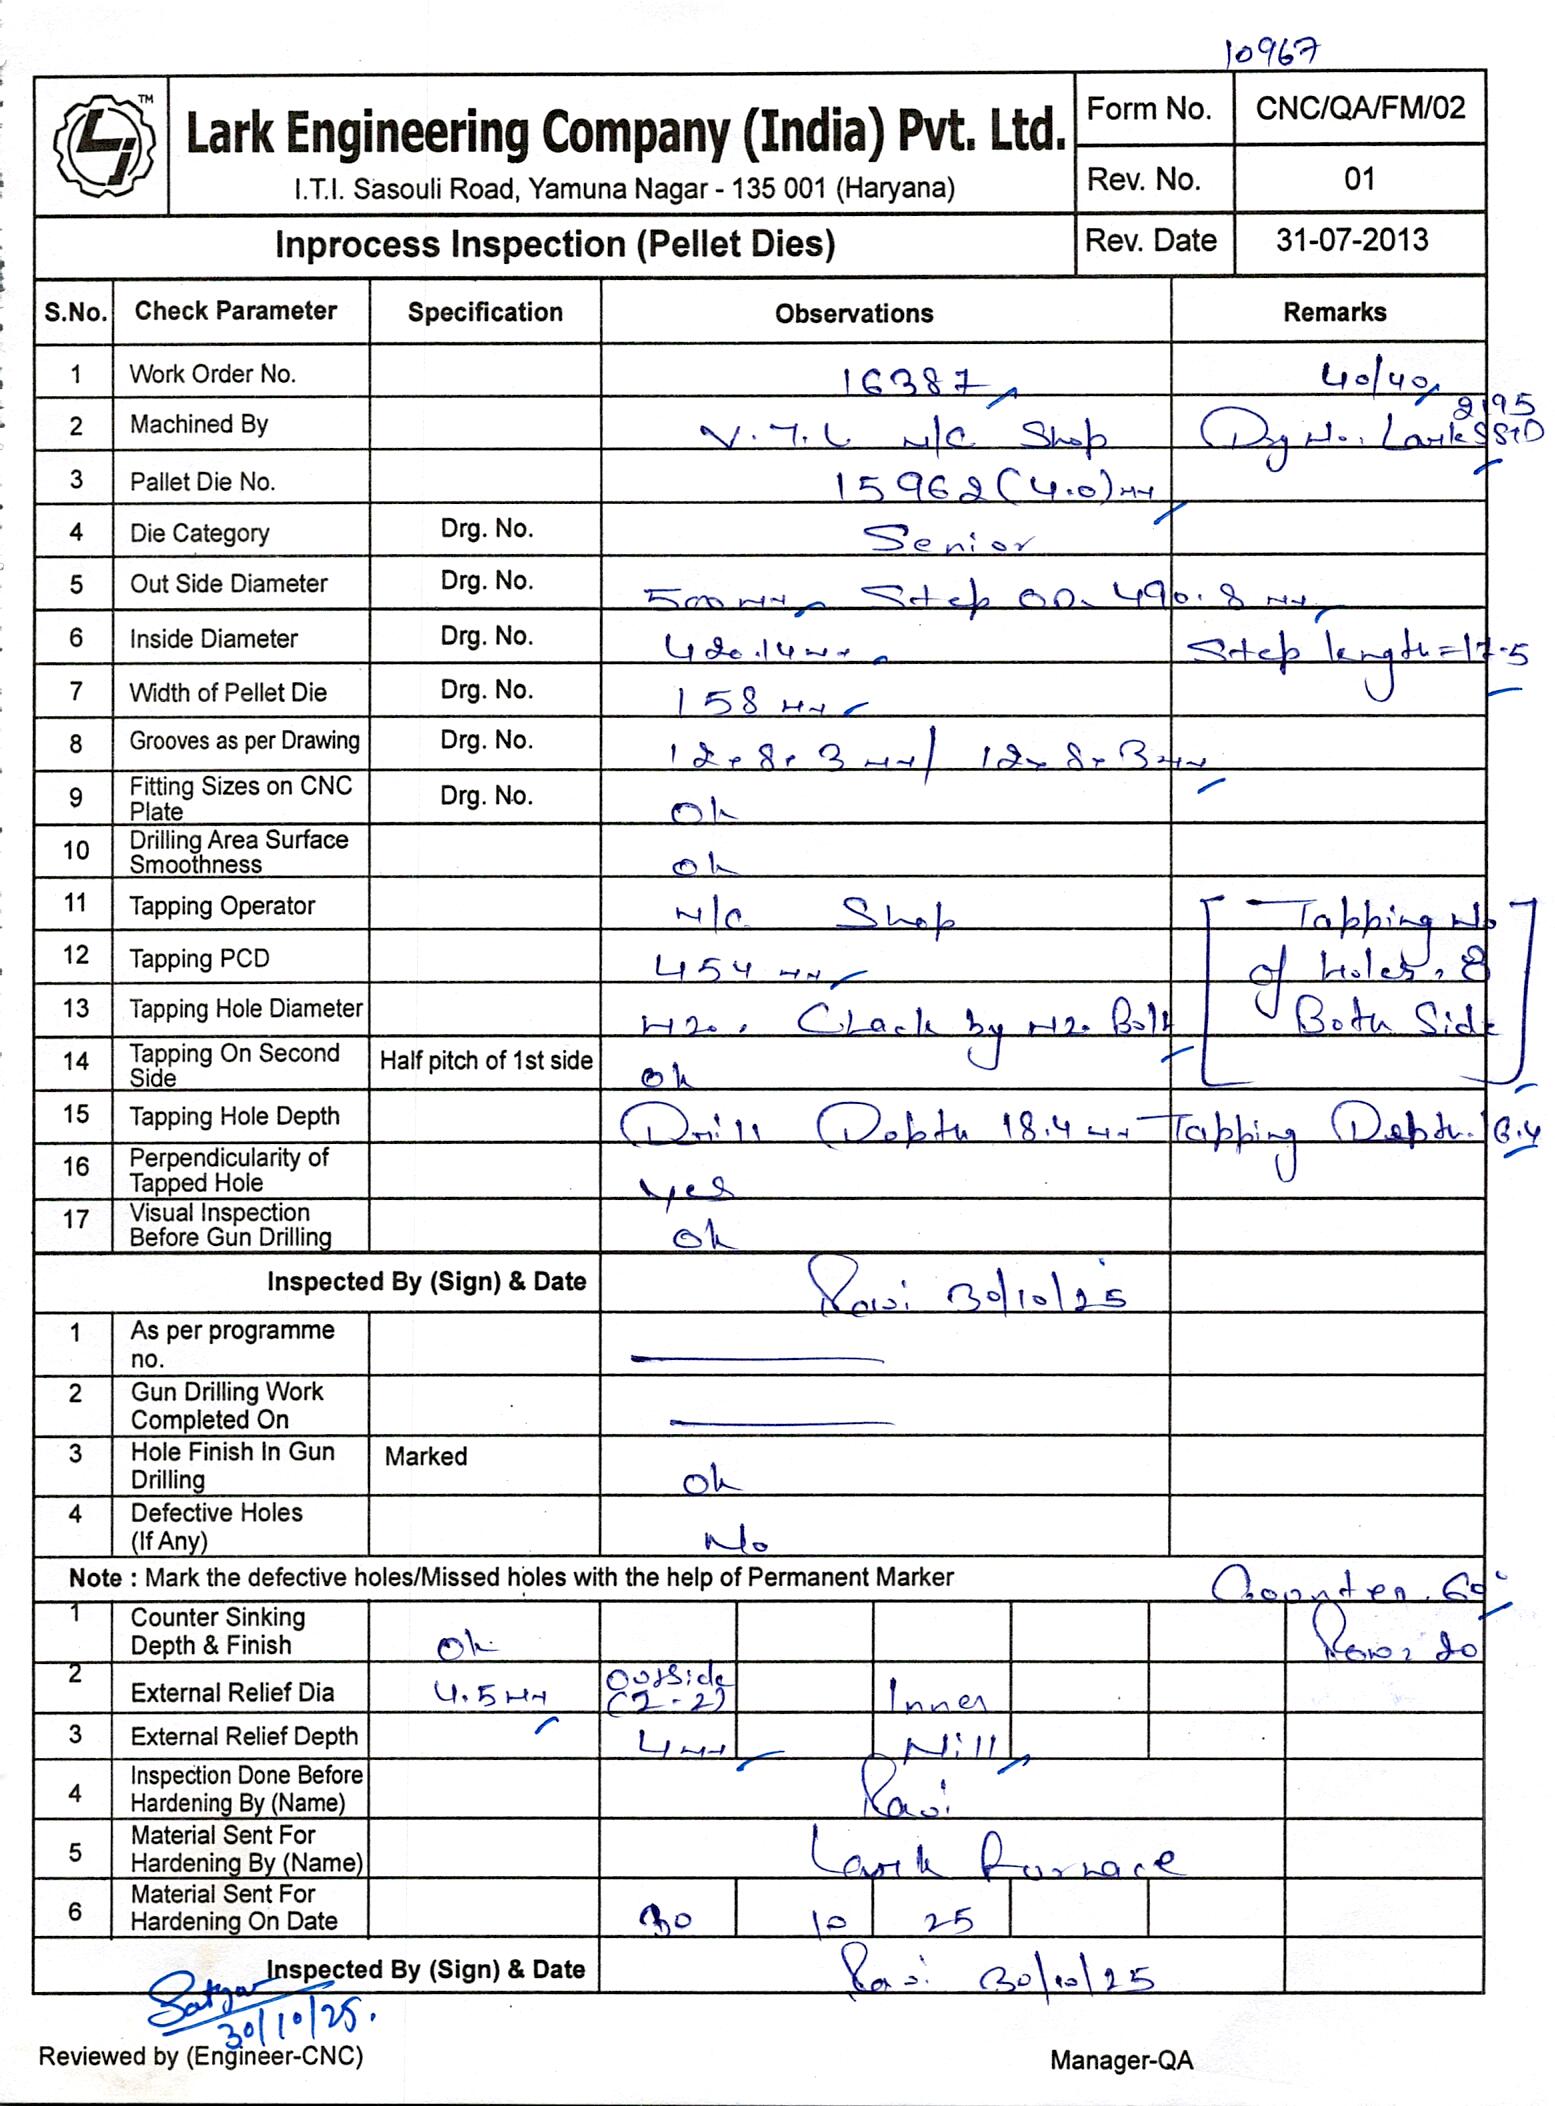 10967
LJ TM
Lark Engineering Company (India) Pvt. Ltd.
I.T.I. Sasouli Road, Yamuna Nagar - 135 001 (Haryana)
Form No. CNC/QA/FM/02
Rev. No. 01
Inprocess Inspection (Pellet Dies)
Rev. Date 31-07-2013
S.No. Check Parameter Specification Observations Remarks
1 Work Order No. 16387 40/40
2 Machined By V.T.L M/C Shop Drg No. Lark 2195 STD
3 Pallet Die No. 15962 (4.0) mm
4 Die Category Drg. No. Senior
5 Out Side Diameter Drg. No. 500 mm Step OD. 490.8 mm
6 Inside Diameter Drg. No. 420.14 mm Step length = 17.5
7 Width of Pellet Die Drg. No. 158 mm
8 Grooves as per Drawing Drg. No. 12 x 8 x 3 mm / 12 x 8 x 3 mm
9 Fitting Sizes on CNC Plate Drg. No. Ok
10 Drilling Area Surface Smoothness Ok
11 Tapping Operator M/C Shop [Tapping No
12 Tapping PCD 454 mm of Holes. 8
13 Tapping Hole Diameter M20. Check by M20 Bolt Both Side]
14 Tapping On Second Side Half pitch of 1st side Ok
15 Tapping Hole Depth Drill Depth 18.4 mm Tapping Depth.
16 Perpendicularity of Tapped Hole Yes
17 Visual Inspection Before Gun Drilling Ok
Inspected By (Sign) & Date Ravi 30/10/25
1 As per programme no.
2 Gun Drilling Work Completed On
3 Hole Finish In Gun Drilling Marked Ok
4 Defective Holes (If Any) No
Note : Mark the defective holes/Missed holes with the help of Permanent Marker Counter. 60°
1 Counter Sinking Depth & Finish Ok
2 External Relief Dia 4.5 mm Outside (2-2) Inner
3 External Relief Depth 4 mm Nill
4 Inspection Done Before Hardening By (Name) Ravi
5 Material Sent For Hardening By (Name) Lark Furnace
6 Material Sent For Hardening On Date 30 10 25
Inspected By (Sign) & Date Ravi 30/10/25
30/10/25.
Reviewed by (Engineer-CNC) Manager-QA